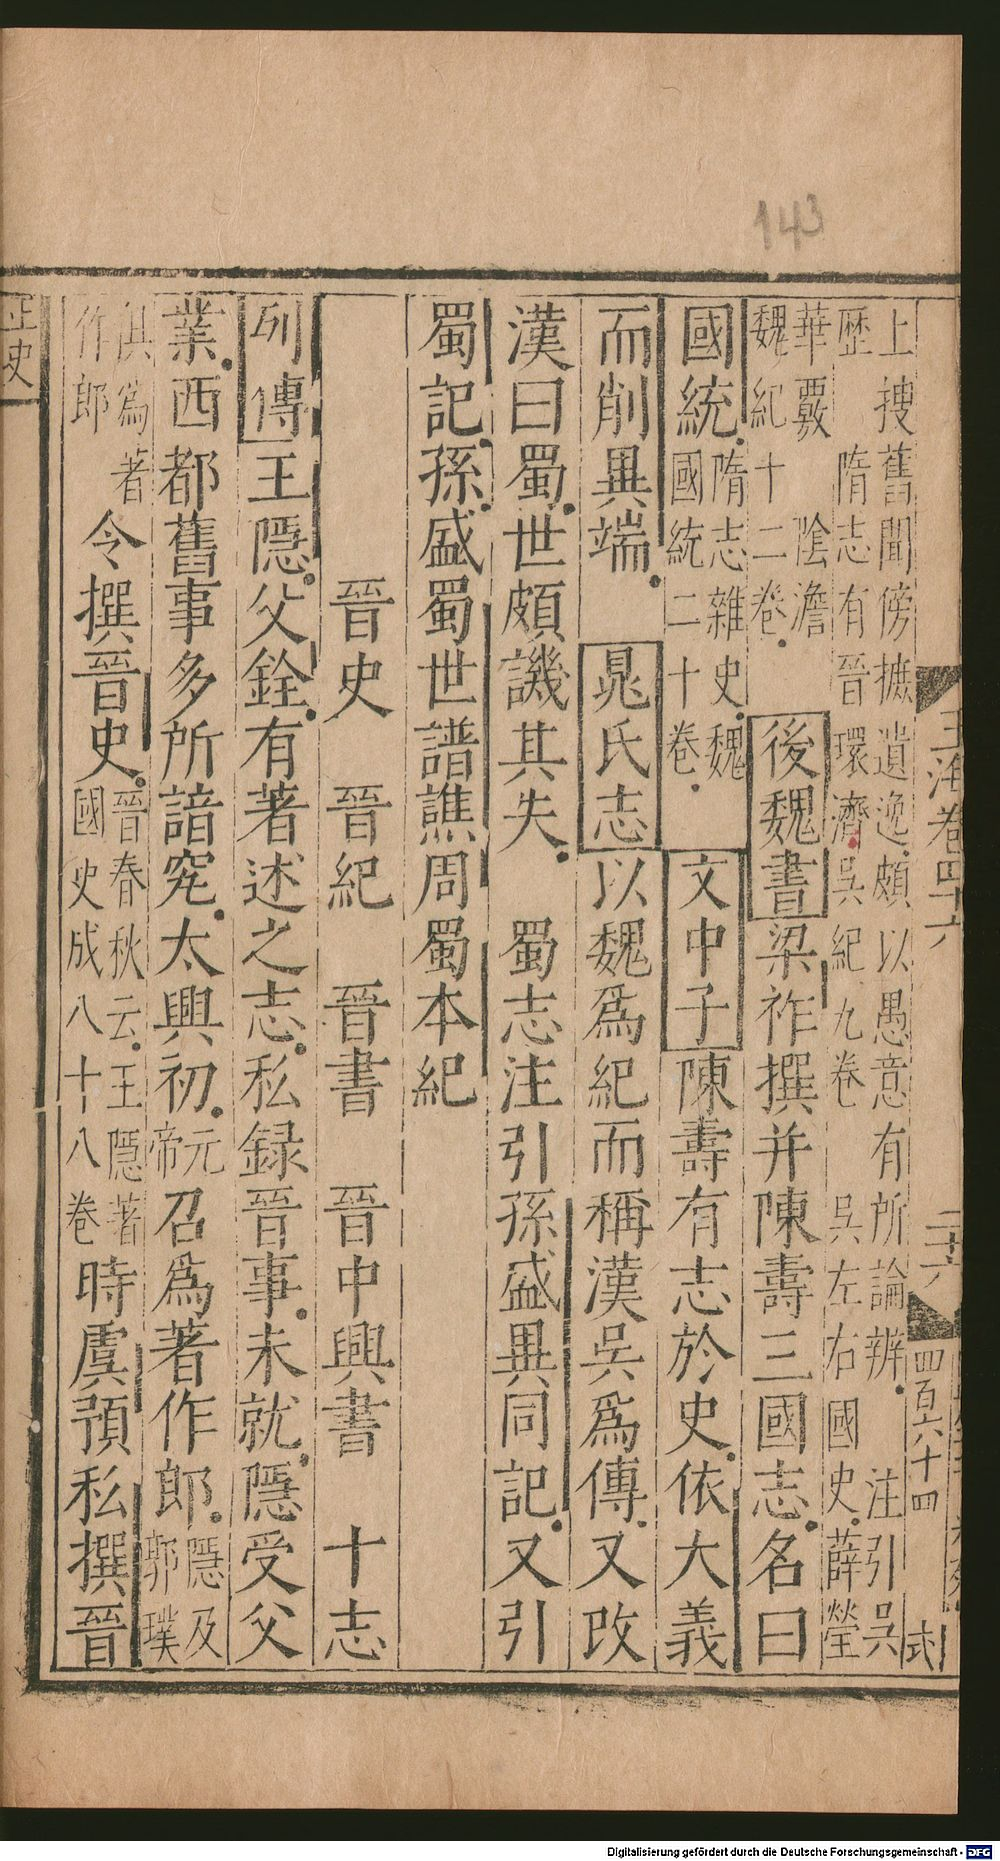 143
上搜舊聞傍摭遺逸頗以愚意有所論辨 注引吳
歷 隋志有晉環濟吳紀九卷 吳左右國史薛瑩
華覈 陰澹
魏紀十二卷 後魏書梁祚撰并陳壽三國志名曰
國統隋志雜史魏國統二十卷 文中子陳壽有志於史依大義
而削異端 晁氏志以魏爲紀而稱漢吳爲傳又改
漢曰蜀世頗譏其失 蜀志注引孫盛異同記又引
蜀記孫盛蜀世譜譙周蜀本紀
晉史 晉紀 晉書 晉中興書 十志
列傳王隱父銓有著述之志私録晉事未就隱受父
業西都舊事多所諳究太興初元帝召爲著作郎隱及郭璞
俱爲著作郎令撰晉史晉春秋云王隱著國史成八十八卷時虞預私撰晉
正史
玉海卷四十六
二十六
四百六十四
弍
Digitalisierung gefördert durch die Deutsche Forschungsgemeinschaft - DFG